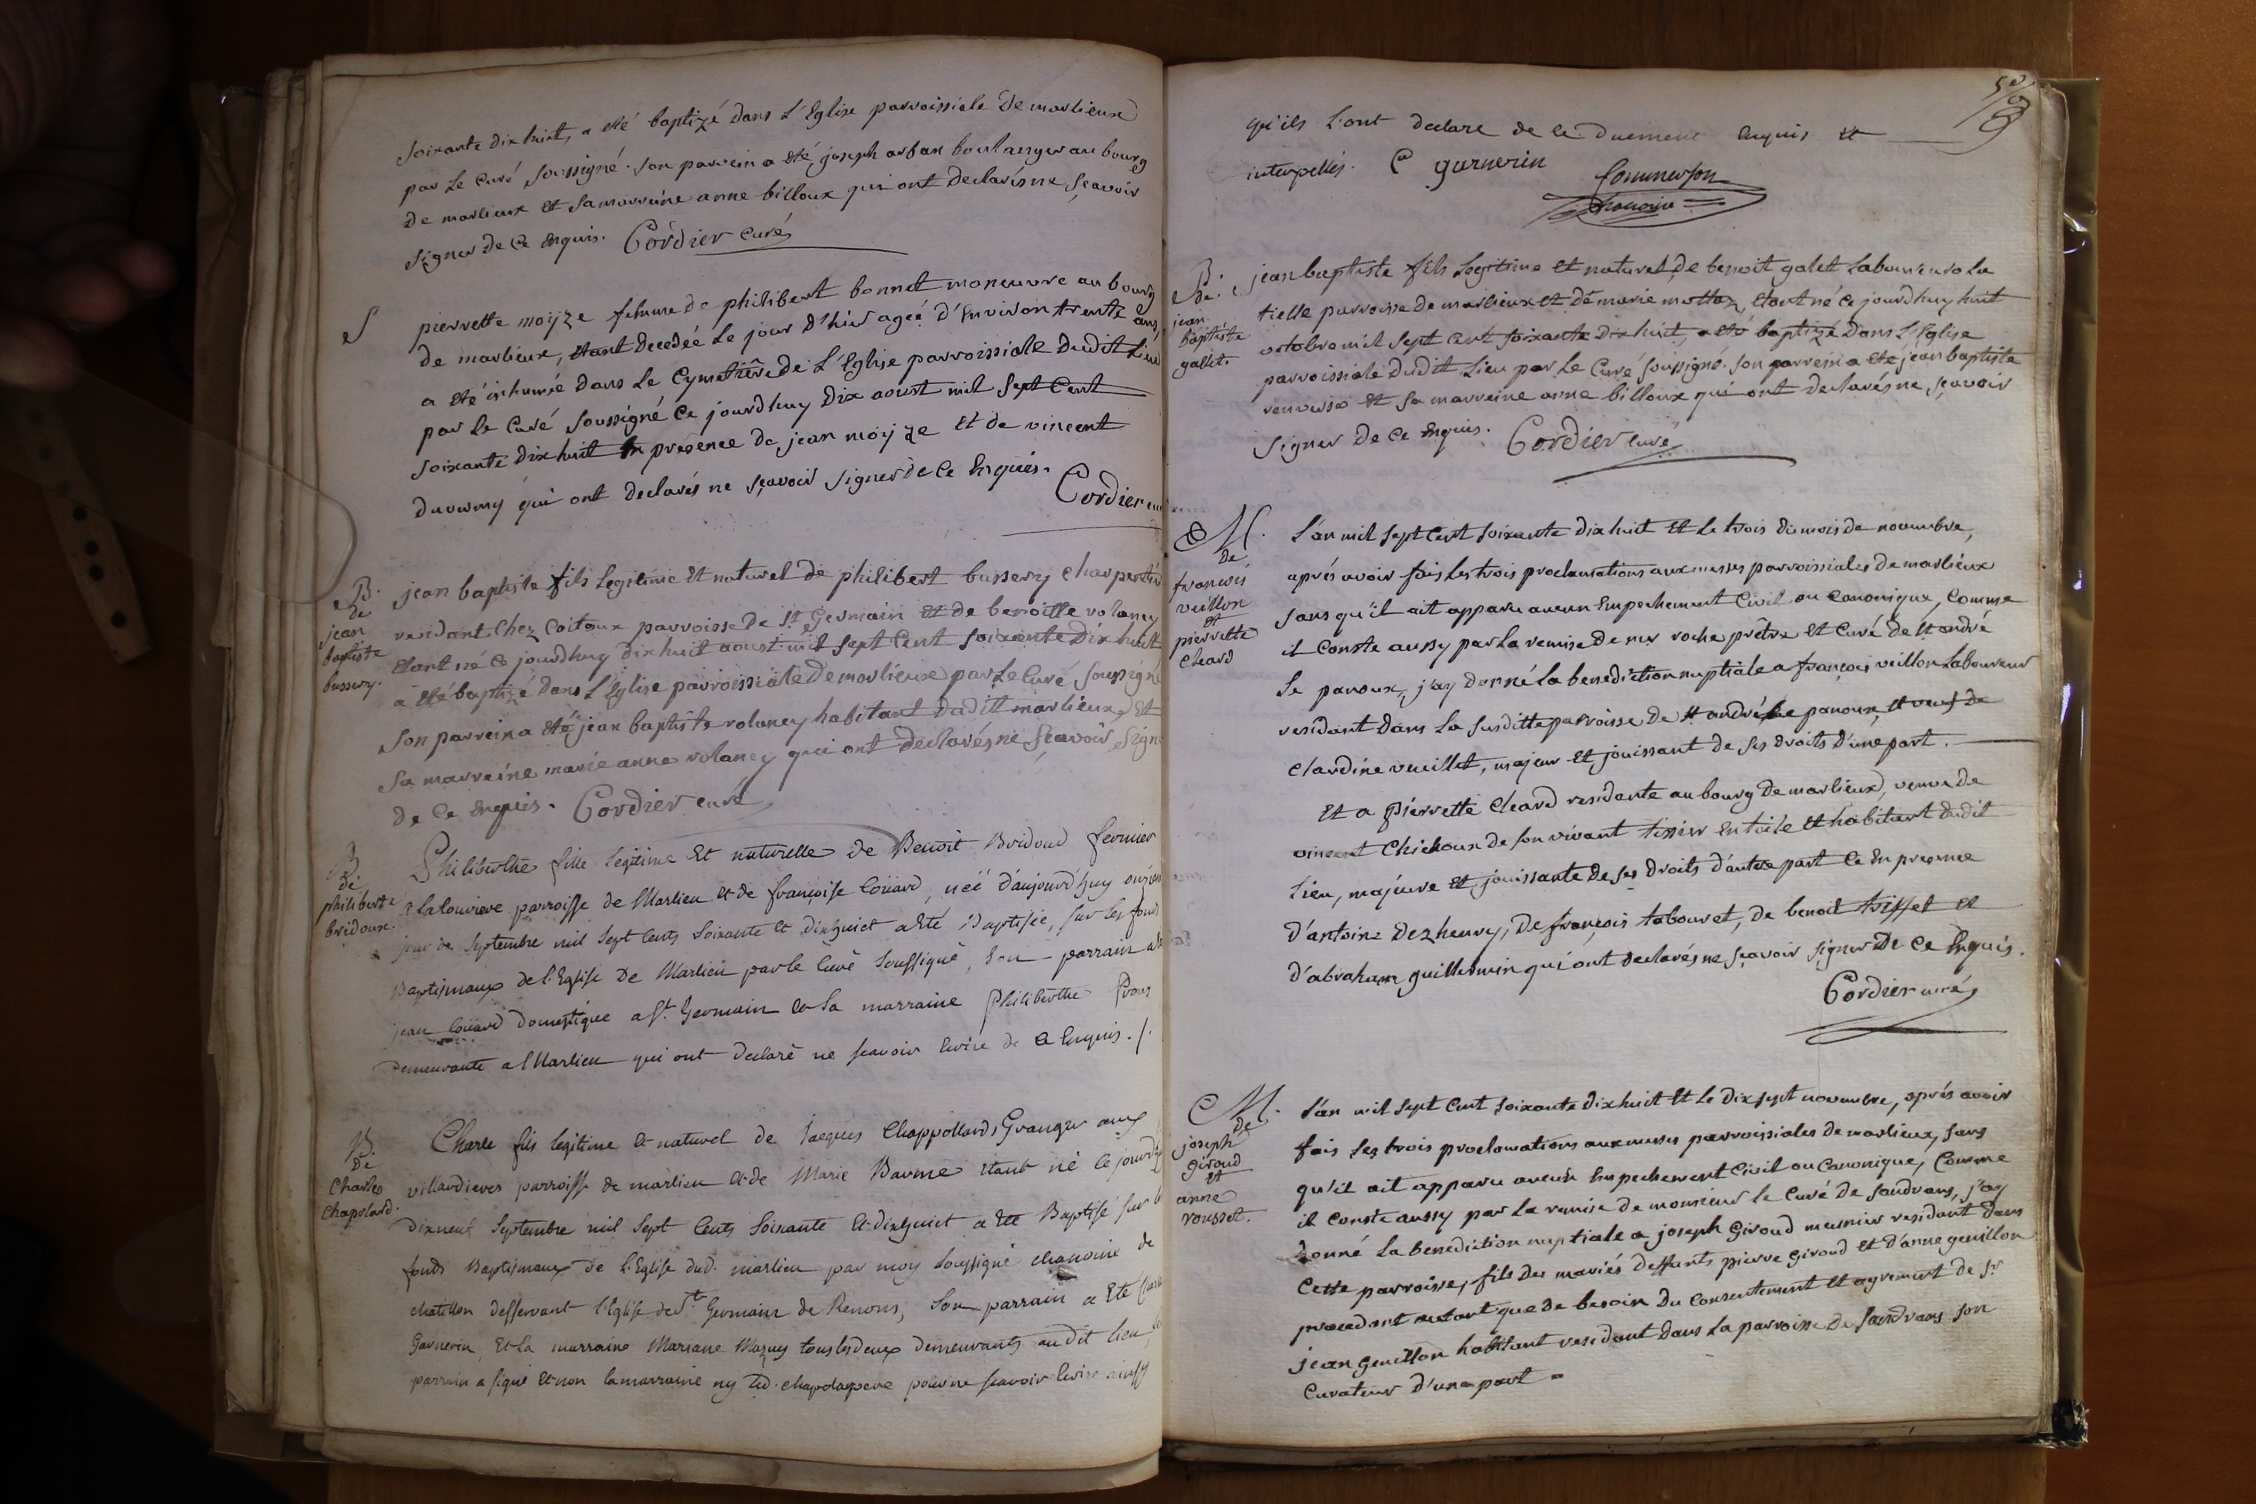 soixante dix huit, a eté baptizé dans L'Eglise parroissiale de marlieux
par Le Curé soussigné. son parrein a eté joseph arban boulanger au bourg
de marlieux et sa marreine anne billoux qui ont declarés ne sçavoir
signer de ce enquis. Cordier curé
S
pierrette moÿze femme de philibert bonnet maneuvre au bourg
de marlieux, etant decedée Le jour d'hier ageé d'Environ trente ans,
a eté inhumée dans Le Cymetiere de L'Eglise parroissiale dudit Lieu
par Le Curé soussigné Ce jourdhuy dix aoust mil sept Cent
soixante dix huit En presence de jean moÿze et de vincent
qui ont declarés ne sçavoir signer de Ce Enquis.
Cordier
B.
de
jean
baptiste
bussery.
jean baptiste fils Legitime et naturel de philibert bussery Charpentier
residant Chez Coitoux parroisse de St Germain et de benoitte volancy
etant né Ce jourdhuy dix huit aoust mil sept Cent soixante dix huit
a eté baptizé dans L'Eglise parroissiale de marlieux par Le Curé soussigné
son parrein a eté jean baptiste volancy habitant dudit marlieux, et
sa marreine marie anne volancy qui ont declarés ne sçavoir signer
de Ce enquis. Cordier curé
B.
de
philiberte
bridoux.
Philiberthe fille legitime Et naturelle de Benoit Bridoux fermier
a la louviere parroisse de Marlieu et de françoise Coüard, néé d'aujourd'huy onzieme
jour de Septembre mil sept Cents Soixante et dixhuict a Eté Baptisée, sur les fonds
Baptismaux de l'Eglise de Marlieu par le Curé Soussigné, son parrain a Eté
jean Coüard domestique a St. Germain et la marraine Philiberthe
demeurante a Marlieu qui ont declaré ne scavoir Ecrire de ce Enquis ./.
B.
de
Charles
Chapolard.
Charle fils legitime et naturel de Jacques Chappollard Granger aux
villardieres parroisse de marlieu et de Marie Barme Etant né ce jourd'huy
dixneuf Septembre mil Sept Cents Soixante et dixhuict a Eté Baptisé sur les
fonds Baptismaux de l'Eglise dud. marlieu par moy Soussigné chanoine de
chatillon desservant l'Eglise de St. Germain de Renons, son parrain a Eté
Garnerin, Et la marraine Mariane Mazuy tous les deux demeurants au dit lieu, le
parrain a signé Et non la marraine ny led. chapolard pere pour ne scavoir Ecrire ainsy
58
qu'ils l'ont declaré de ce duement enquis et
interpellés. C garnerin Commerson
chanoine
B.
de
jean
baptiste
gallet.
jean baptiste fils Legitime et naturel de benoit galet Laboureur a La
tielle parroisse de marlieux et de marie mottaz, etant né ce jourdhuy huit
octobre mil sept cent soixante dix huit, a eté baptizé dans L'Eglise
parroissiale dudit Lieu par Le Curé soussigné. son parrein a eté jean baptiste
et sa marreine anne billoux qui ont declarés ne sçavoir
signer de Ce enquis. Cordier curé
M.
de
françois
veillon
et
pierrette
Cleard
L'an mil sept Cent soixante dix huit et Le trois du mois de novembre,
aprés avoir fais Les trois proclamations aux messes parroissiales de marlieux
sans qu'il ait apparu aucun Empechement Civil ou Canonique, Comme
il Conste aussy par La remise de mr roche prêtre et Curé de st andré
Le panoux, j'ay donné La benediction nuptiale a françois veillon Laboureur
residant dans La susditte parroisse de st andré Le panoux, et veuf de
Clardine veuillet, majeur et jouissant de ses droits d'une part.
Et a pierrette Cleard residente au bourg de marlieux, veuve de
vincent Chichoux de son vivant tissier en toile et habitant dudit
Lieu, majeure et jouissante de ses droits d'autre part Ce En presence
d'antoine dezheury, de françois tabouret, de benoit trisset et
d'abraham guillermin qui ont declarés ne sçavoir signer de Ce Enquis.
Cordier curé
M.
de
joseph
giroud
et
anne
rousset.
L'an mil sept Cent soixante dix huit et Le dix sept novembre, aprés avoir
fais Les trois proclamations aux messes parroissiales de marlieux, sans
qu'il ait apparu aucun Empechement Civil ou Canonique, Comme
il Conste aussy par La remise de monsieur Le Curé de sandrans, j'ay
donné La benediction nuptiale a joseph Giroud meunier residant dans
Cette parroisse, fils des mariés deffunts pierre Giroud et d'anne genillon
procedant autant que de besoin du Consentement et agrement de sr
jean genillon habitant residant dans La parroisse de sandrans son
Curateur d'une part